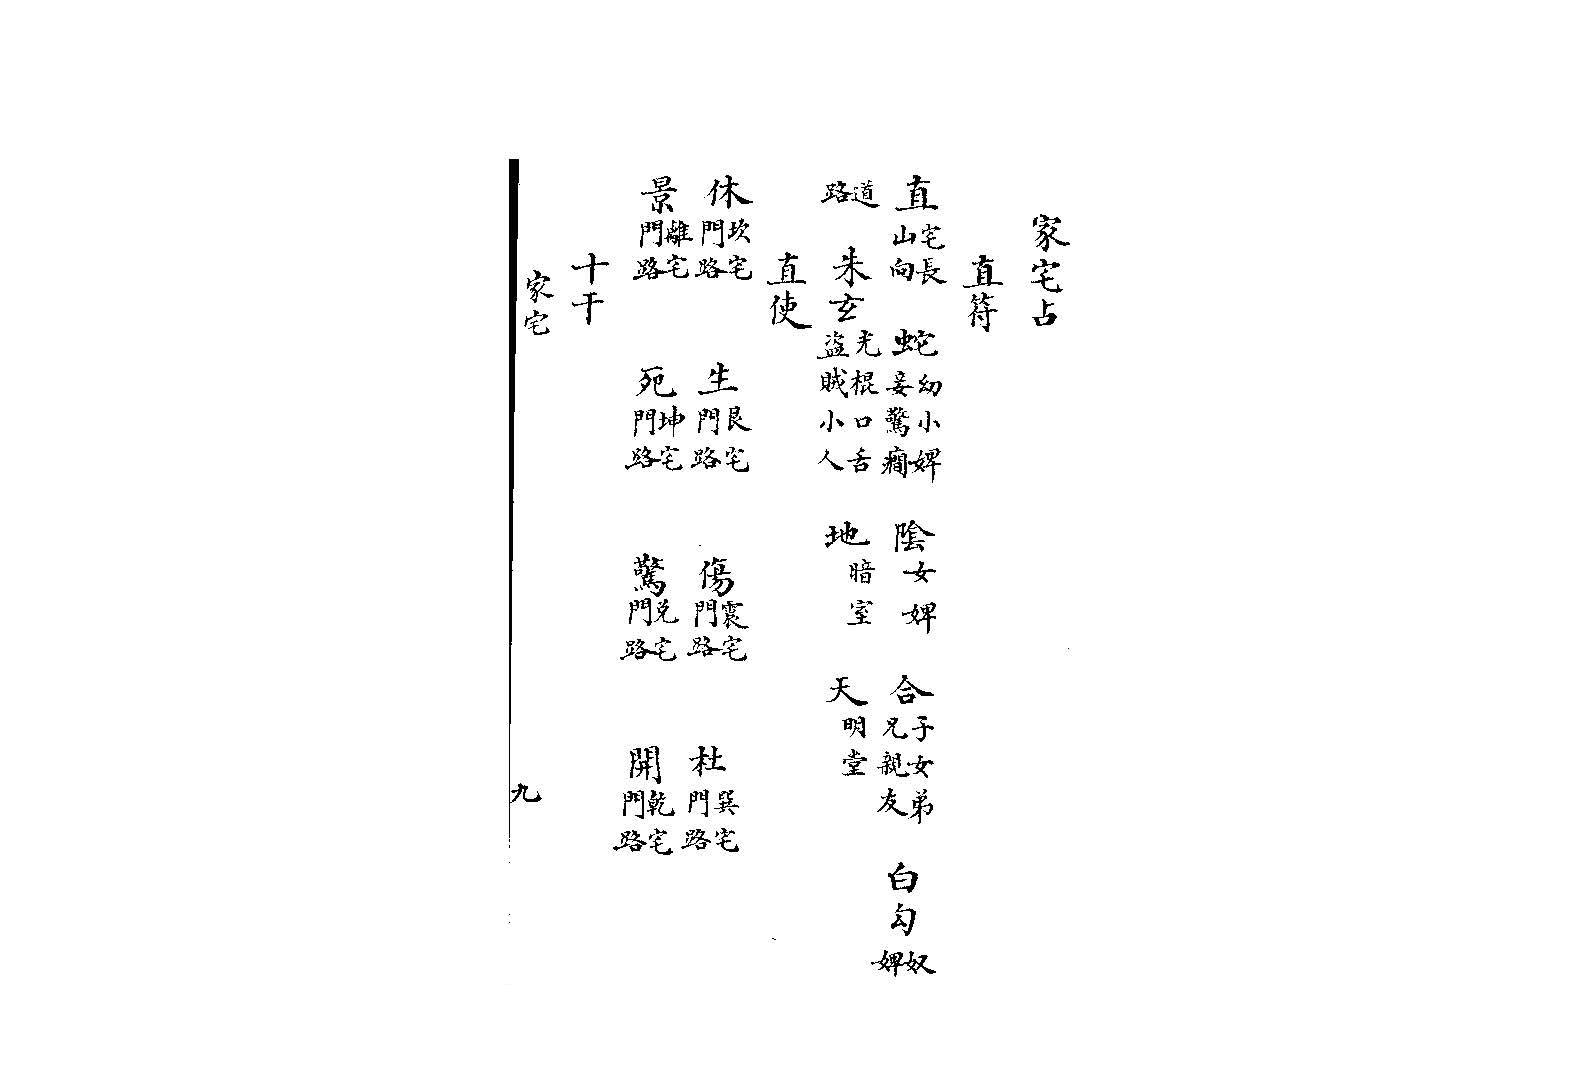 家宅占
直符
直宅長山向 蛇幼小婢妾驚癎 陰女婢 合子女弟兄親友 白勾奴婢
道路 朱玄光棍口舌盜賊小人 地暗室 天明堂
直使
休坎宅門路 生艮宅門路 傷震宅門路 杜巽宅門路
景離宅門路 死坤宅門路 驚兌宅門路 開乾宅門路
十干
家宅 九